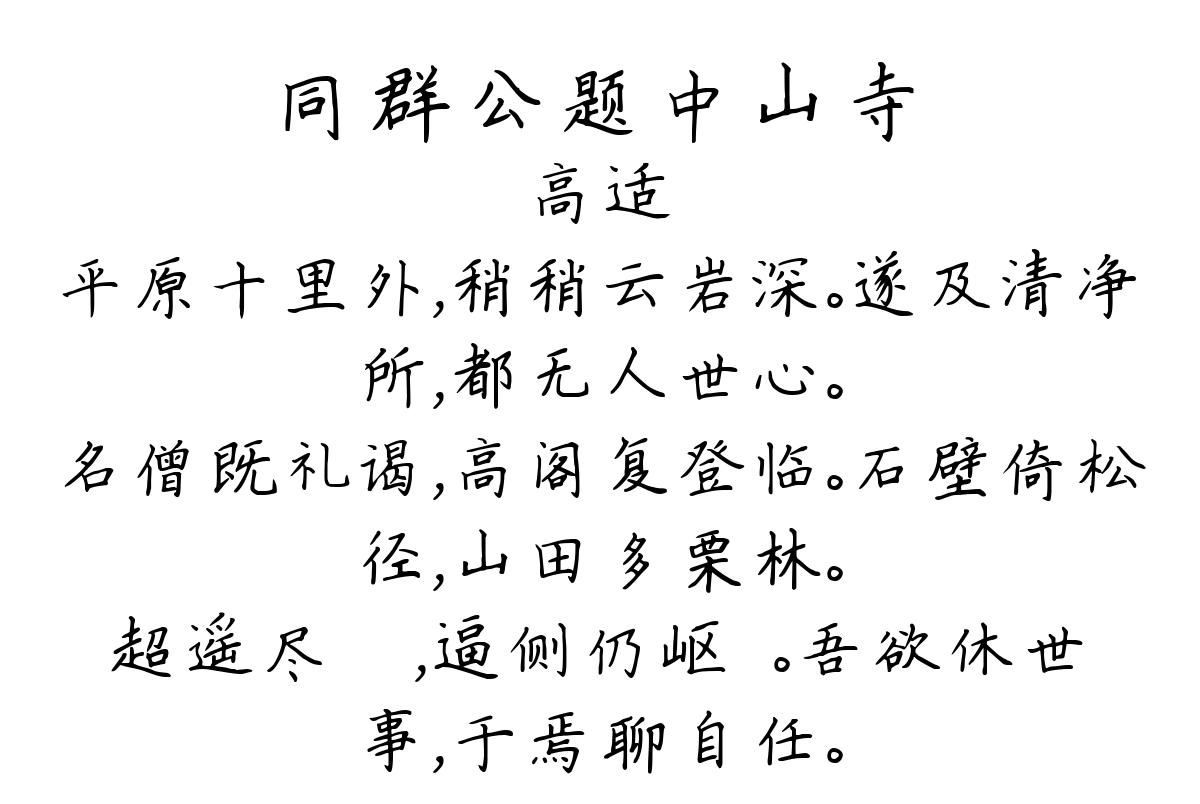 同群公题中山寺
高适
平原十里外,稍稍云岩深。遂及清净
所,都无人世心。
名僧既礼谒,高阁复登临。石壁倚松
径,山田多栗林。
超遥尽 ,逼侧仍岖 。吾欲休世
事,于焉聊自任。